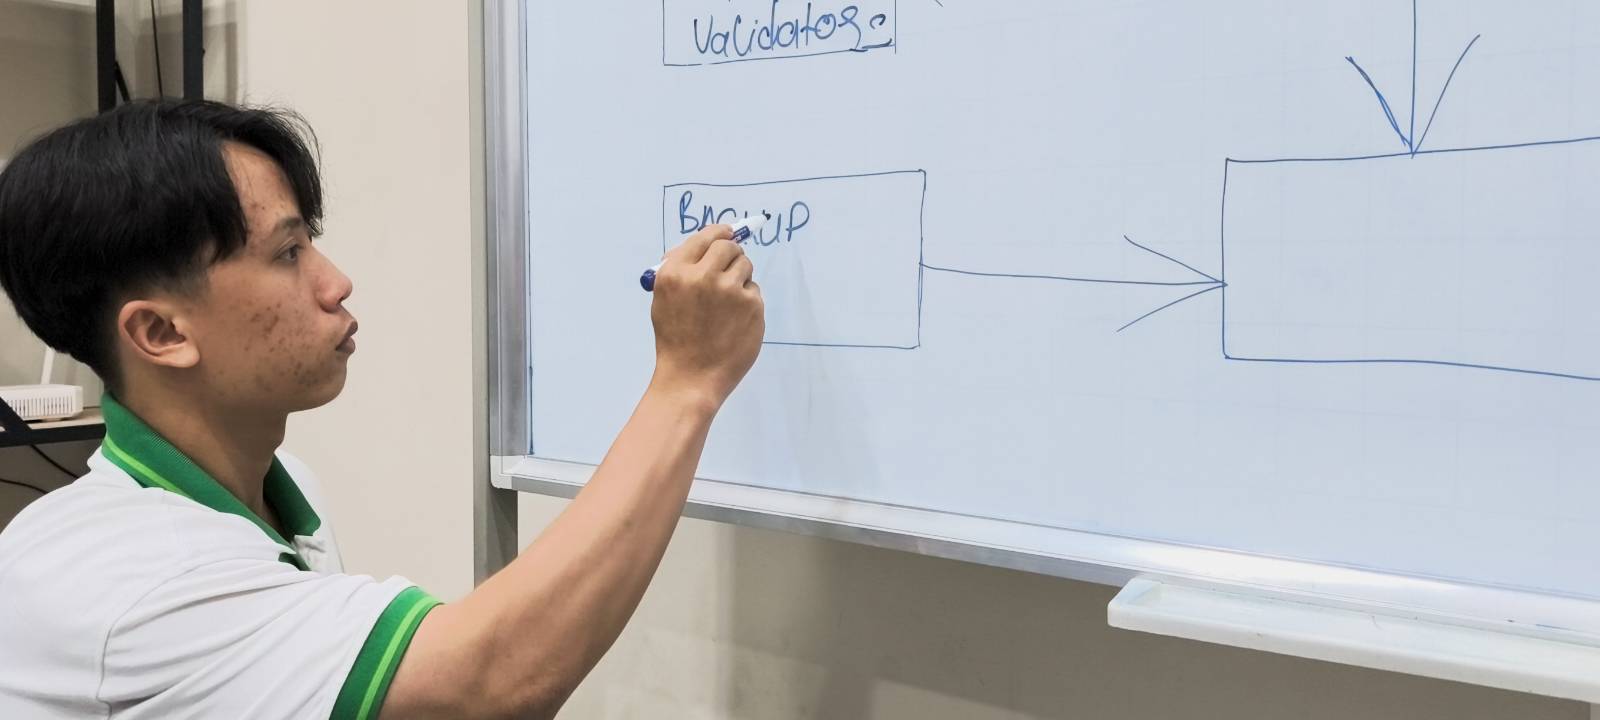 Validator
BACKUP